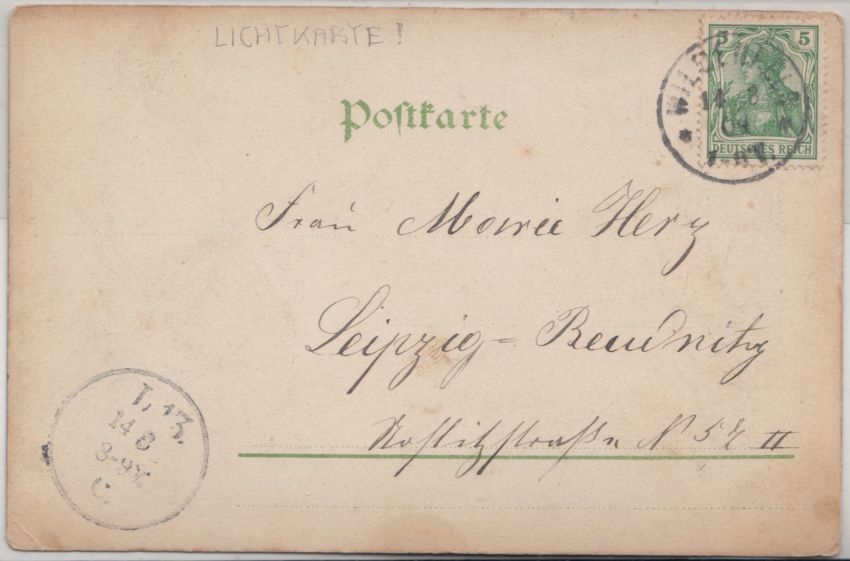 LICHTKARTE!
5 5
14 8
04
DEUTSCHES REICH
Postkarte
Frau Marie Herz
Leipzig=Reudnitz
Nostitzstraße N 57 II
L. 13.
14 8
8-9V.
C.